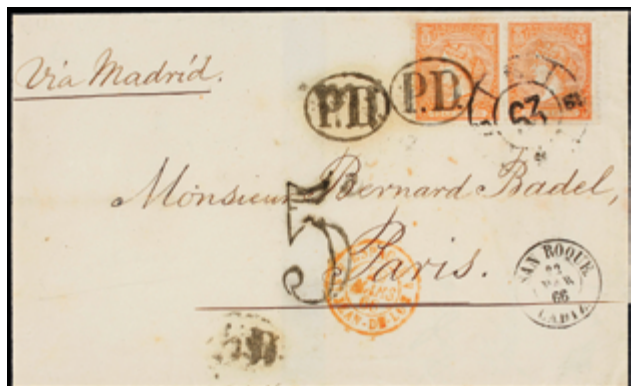 Via Madrid.
P.D.
P.D.
63
Monsieur Bernard Badel,
5
Paris.
SAN ROQUE
22
MAR
66
CADIZ
P.D.